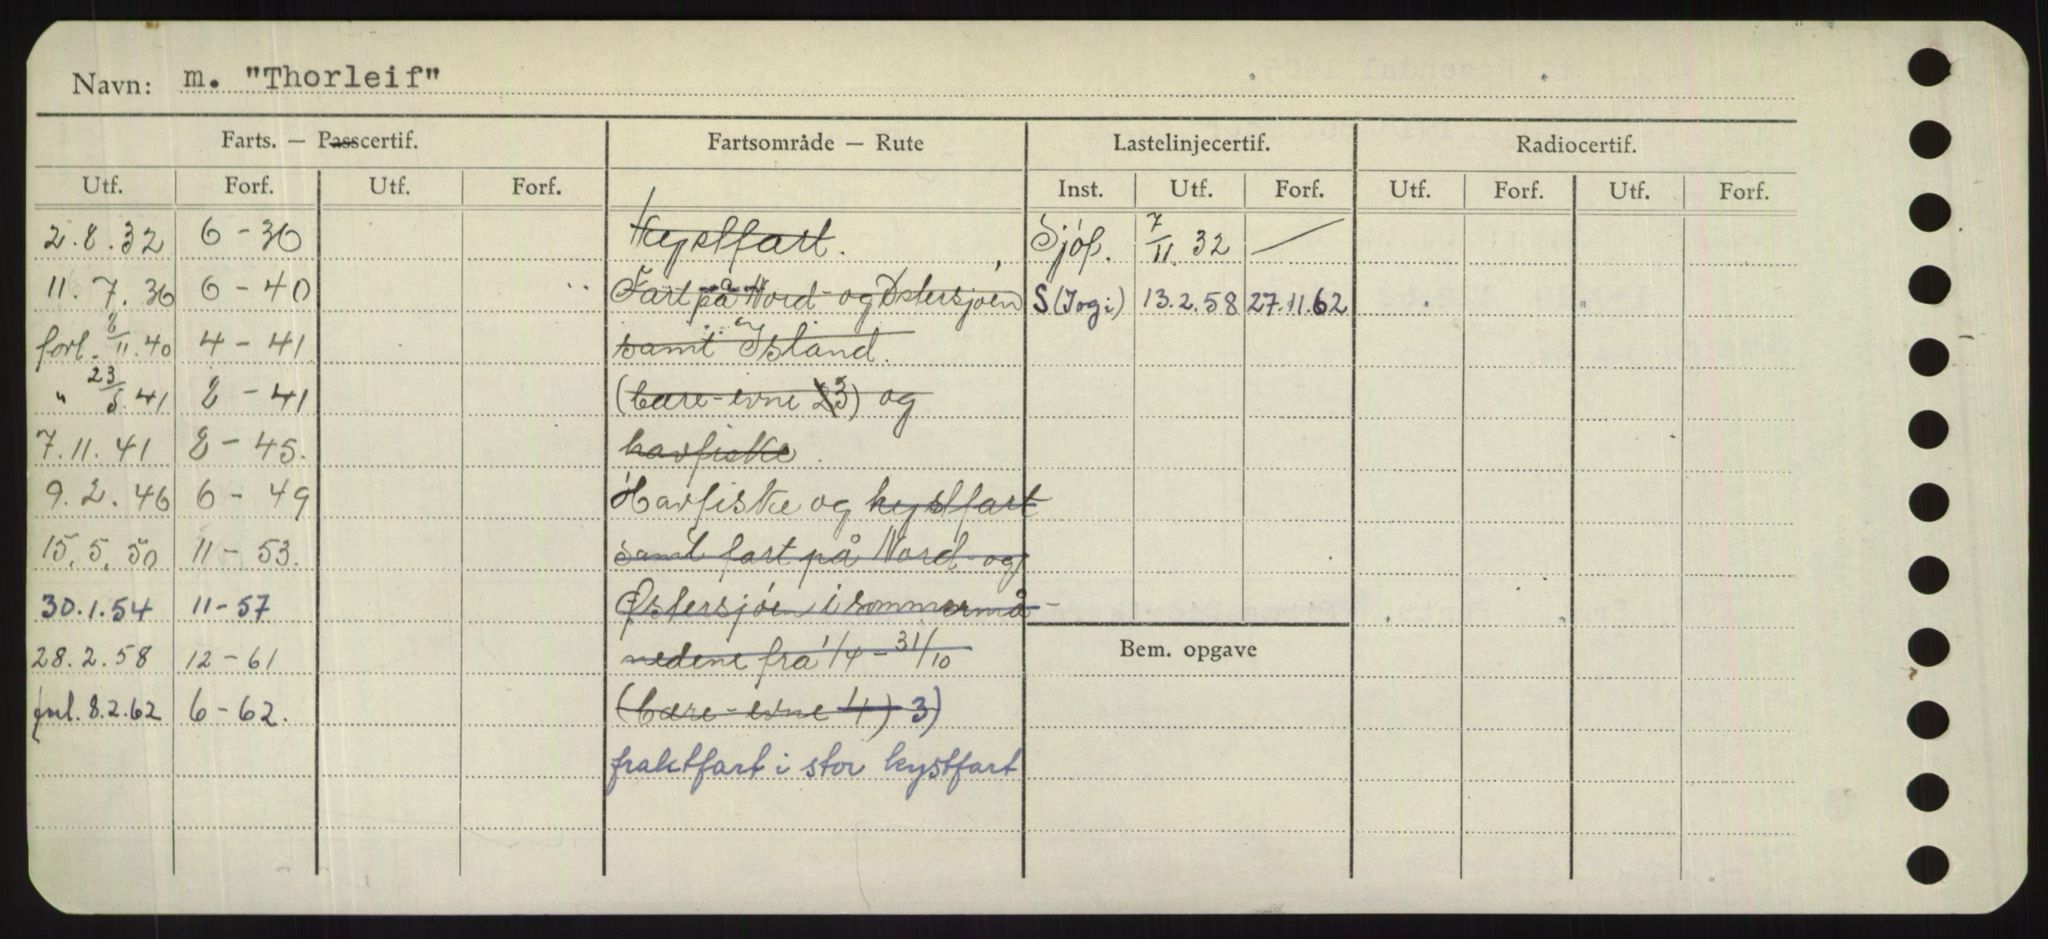 Navn: m. "Thorleif"
Farts. — Passcertif. Fartsområde — Rute Lastelinjecertif. Radiocertif.
Utf. Forf. Utf. Forf. Inst. Utf. Forf. Utf. Forf. Utf. Forf.
2.8.32 6-36 Kystfart. Sjöf. 7/11 32 —
11.7.36 6-40 Fart på Nord- og Østersjøen S(Jogi) 13.2.58 27.11.62
forl. 8/11.40 4-41 samt Island.
" 23/5.41 8-41 (bære-evne 23) og
7.11.41 8-45. havfiske.
9.2.46 6-49 Havfiske og kystfart
15.5.50 11-53. samt fart på Nord- og
30.1.54 11-57 Østersjøen i sommermå-
Bem. opgave
28.2.58 12-61 nedene fra 1/4 - 31/10
8.2.62 6-62. (bære-evne 4) 3)
fraktfart i stor kystfart